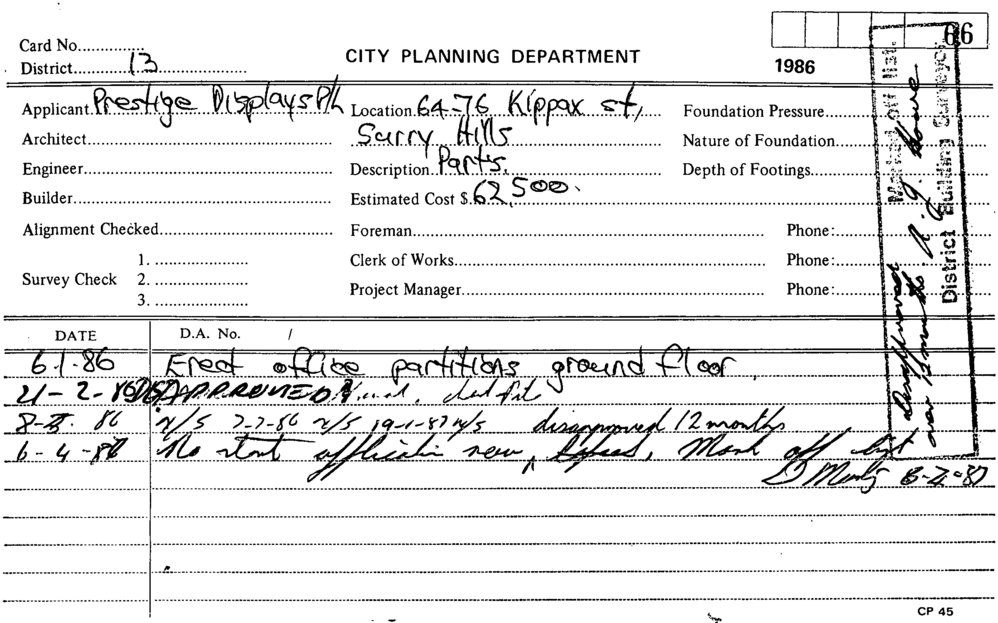 66
Card No...............
District.....13.....
CITY PLANNING DEPARTMENT
1986
Applicant Prestige Displays P/L
Location 64-76 Kippax st,
Foundation Pressure
Architect
Surry Hills
Nature of Foundation
Engineer
Description Part's.
Depth of Footings
Builder
Estimated Cost $ 62,500.
Alignment Checked
Foreman
Phone:
Survey Check
1.
2.
3.
Clerk of Works
Phone:
Project Manager
Phone:
Marked off list.
District Building Surveyor
Disapproved
over 12 months
DATE
D.A. No. /
6.1.86 Erect office partitions ground floor.
21-2-86 DISAPPROVED
86 N/S 7-7-86 N/S 19-1-87 N/S disapproved 12 months
6-4-87 No start application now lapsed, Mark off list
CP 45